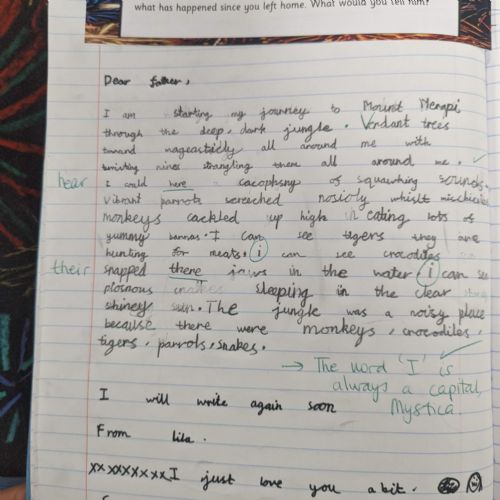 what has happened since you left home. What would you tell him?
Dear father,
I am starting my journey to Mount Merapi
through the deep, dark jungle. Verdant trees
toward mageasticly all around me with
twisting vines strangling them all around me.
hear
I could here a cacophony of squawking sounds.
Vibrant parrots screached nosioly whislt mischief
monkeys cackled up high in eating lots of
yummy bannas. I can see tigers they are
hunting for meats. i can see crocodiles
their
snapped there jaws in the water i can see
pioisnous snakes sleeping in the clear
shiney sun. The jungle was a noisy place
because there were monkeys, crocodiles,
tigers, parrots, snakes.
→ The word 'I' is
always a capital,
Mystica.
I will write again soon
From lila.
xxxxxxxxx I just love you a bit.